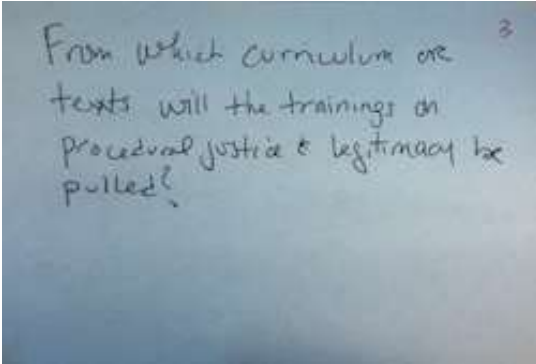 3
From which curriculum or
texts will the trainings on
procedural justice & legitimacy be
pulled?